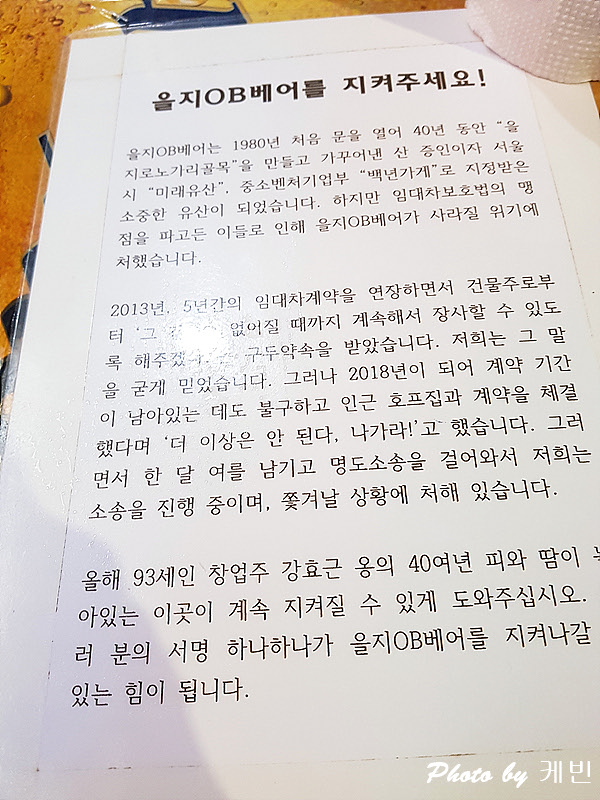 을지OB베어를 지켜주세요!
을지OB베어는 1980년 처음 문을 열어 40년 동안 “을
지로노가리골목”을 만들고 가꾸어낸 산 증인이자 서울
시 “미래유산”, 중소벤처기업부 “백년가게”로 지정받은
소중한 유산이 되었습니다. 하지만 임대차보호법의 맹
점을 파고든 이들로 인해 을지OB베어가 사라질 위기에
처했습니다.
2013년, 5년간의 임대차계약을 연장하면서 건물주로부
터 ‘그 없어질 때까지 계속해서 장사할 수 있도
록 해주겠 구두약속을 받았습니다. 저희는 그 말
을 굳게 믿었습니다. 그러나 2018년이 되어 계약 기간
이 남아있는 데도 불구하고 인근 호프집과 계약을 체결
했다며 ‘더 이상은 안 된다, 나가라!’고 했습니다. 그러
면서 한 달 여를 남기고 명도소송을 걸어와서 저희는
소송을 진행 중이며, 쫓겨날 상황에 처해 있습니다.
올해 93세인 창업주 강효근 옹의 40여년 피와 땀이
아있는 이곳이 계속 지켜질 수 있게 도와주십시오.
러 분의 서명 하나하나가 을지OB베어를 지켜나갈
있는 힘이 됩니다.
Photo by 케빈